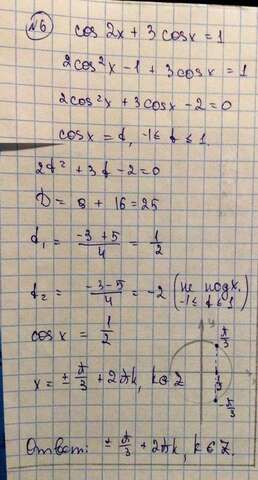 №6 cos 2x + 3 cosx = 1
2cos²x - 1 + 3cosx = 1
2cos²x + 3cosx - 2 = 0
cosx = t, -1 ≤ t ≤ 1.
2t² + 3t - 2 = 0
D = 9 + 16 = 25
t₁ = (-3 + 5)/4 = 1/2
t₂ = (-3 - 5)/4 = -2 (не подх. -1 ≤ t ≤ 1)
cos x = 1/2
x = ± π/3 + 2πk, k∈Z
y
π/3
1/2
-π/3
Ответ: ± π/3 + 2πk, k∈Z.